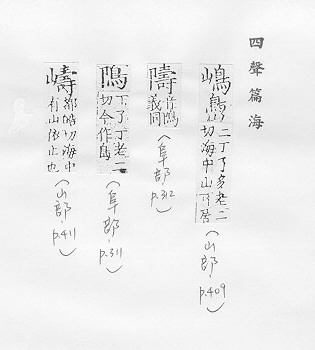 四聲篇海
嶋㠀二丁了多老二
切海中山可居(山部,p.409)
隯音隝
義同(阜部,p.312)
隝丁了丁老二
切今作島(阜部,p.311)
嶹都皓切海中
有山依止也(山部,p.411)